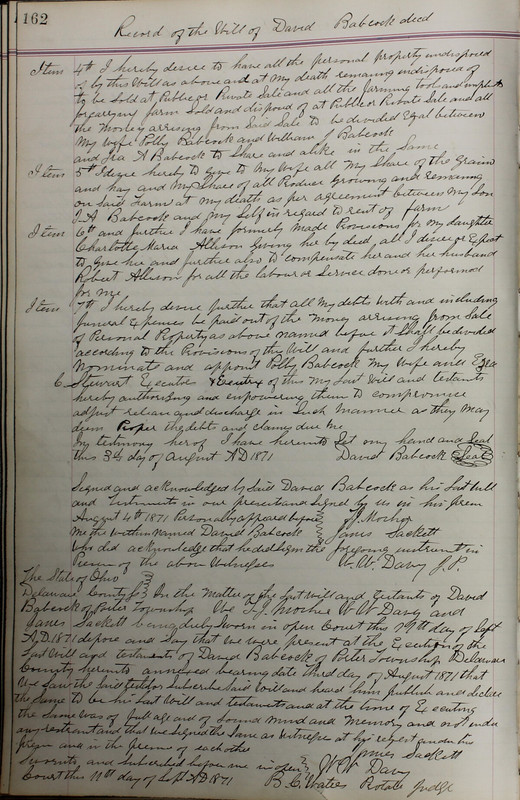 162
Record of the Will of David Babcock decd
Item 4th I hereby desire to have all the personal property undisposed
of by this Will as above and at my death remaining undisposed of
to be Sold at Public or Private Sale and all the farming tools and implements
for carrying farm Sold and disposed of at Public or Private Sale and all
the Money arrising from Said Sale to be divided Equal between
My Wife Polly Babcock and William J Babcock
and Ira A Babcock to Share and alike in the Same
Item 5th I desire hereby to give to My Wife all My Share of the Grain
and hay and My Share of all Produce Growing and remaining
on Said Farms at My death as per agreement between My Son
I. A Babcock and My Self in regard to rent of farm
Item 6th and further I have formerly Made Provisions for My daughter
Charlotte Maria Allison Giving her by deed, all I desire or Expect
to give her and further also to compensate her and her husband
Robert Allison for all the labour or Service done or performed
for me
Item 7th I hereby desire further that all My debts with and including
funeral Expenses be paid out of the Money arrising from Sale
of Personal Property as above named before it Shall be divided
according to the Provisions of this Will and further I hereby
Nominate and appoint Polly Babcock My Wife and Ezra
C. Stewart Executor & Executrix of this My Last Will and
hereby authorising and empowering them to compromise
adjust release and discharge in Such Manner as they May
deem Proper the debts and claims due Me
In testimony herof I have hereunto Set my hand and Seal
this 3rd day of August AD 1871 David Babcock Seal
Signed and acknowledged by Said David Babcock as his last Will
and Testament in our presence and Signed by us in his presence
August 4th 1871 Personally appeared before J Mosher
Me the within Named David Babcock James Sackett
Who did acknowledge that he did Sign the foregoing instrument in
Presence of the above Witnesses W. W. Davy J. P.
The State of Ohio
Delaware County SS In the Matter of the Last Will and of David
Babcock of Porter Township We T. J. W W Davy and
James Sackett being duly Sworn in open Court this day of Sept
A.D. 1871 depose and Say that we were present at the Execution of the
Last Will and testament of David Babcock of Porter Township Delaware
County hereunto annexed bearing date third day of August 1871 that
We Saw the Said testator Subscribe Said Will and heard him publish and declare
the Same to be his Last Will and testament and at the time of Executing
the Same was of full age and of Sound Mind and Memory and not under
any restraint and that we Signed the Same as Witnesses at his request and in his
presence and in the presence of each other James Sackett
Sworn to and Subscribed before me in open W W Davy
Court this 11th day of Sept AD 1871 B. C. Waters Probate Judge